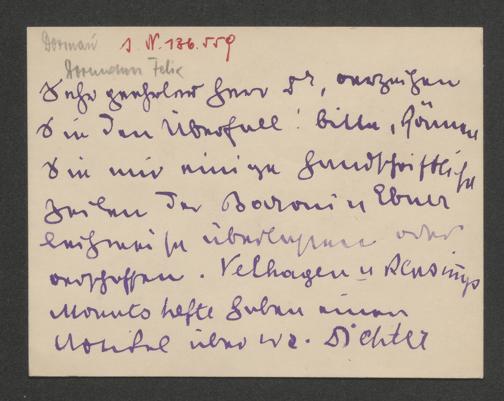 Dörmann I. N. 136.559
Dörmann Felix
Sehr geehrter Herr Dr, verzeihen
Sie den Überfall! bitte, können
Sie mir einige handschriftliche
Zeilen der Baronin Ebner
leihweise überlassen oder
verschaffen. Velhagen u Klasings
Monatshefte haben einen
Artikel über Wr. Dichter